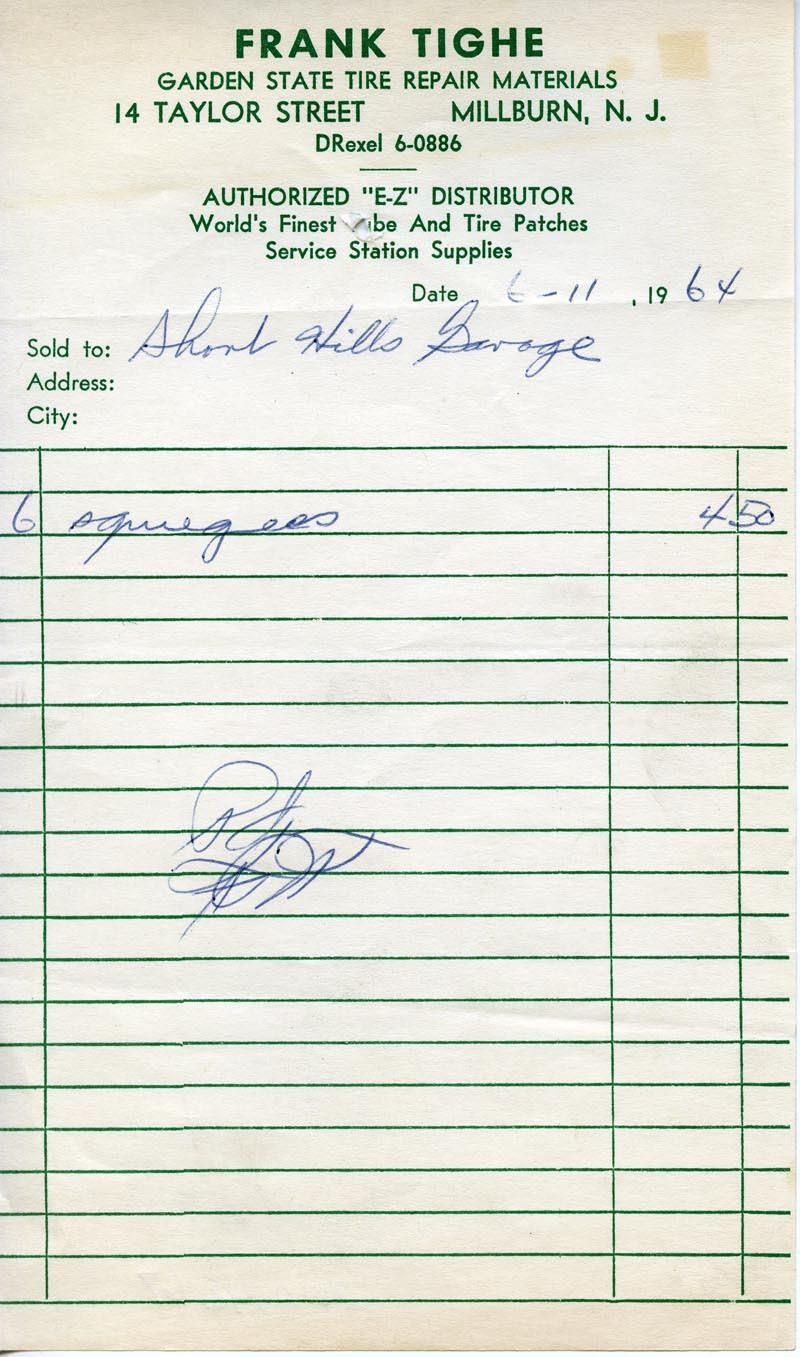 FRANK TIGHE
GARDEN STATE TIRE REPAIR MATERIALS
14 TAYLOR STREET MILLBURN, N. J.
DRexel 6-0886
AUTHORIZED "E-Z" DISTRIBUTOR
World's Finest Tube And Tire Patches
Service Station Supplies
Date 6-11, 1964
Sold to: Short Hills Garage
Address:
City:
6 squegees 4 50